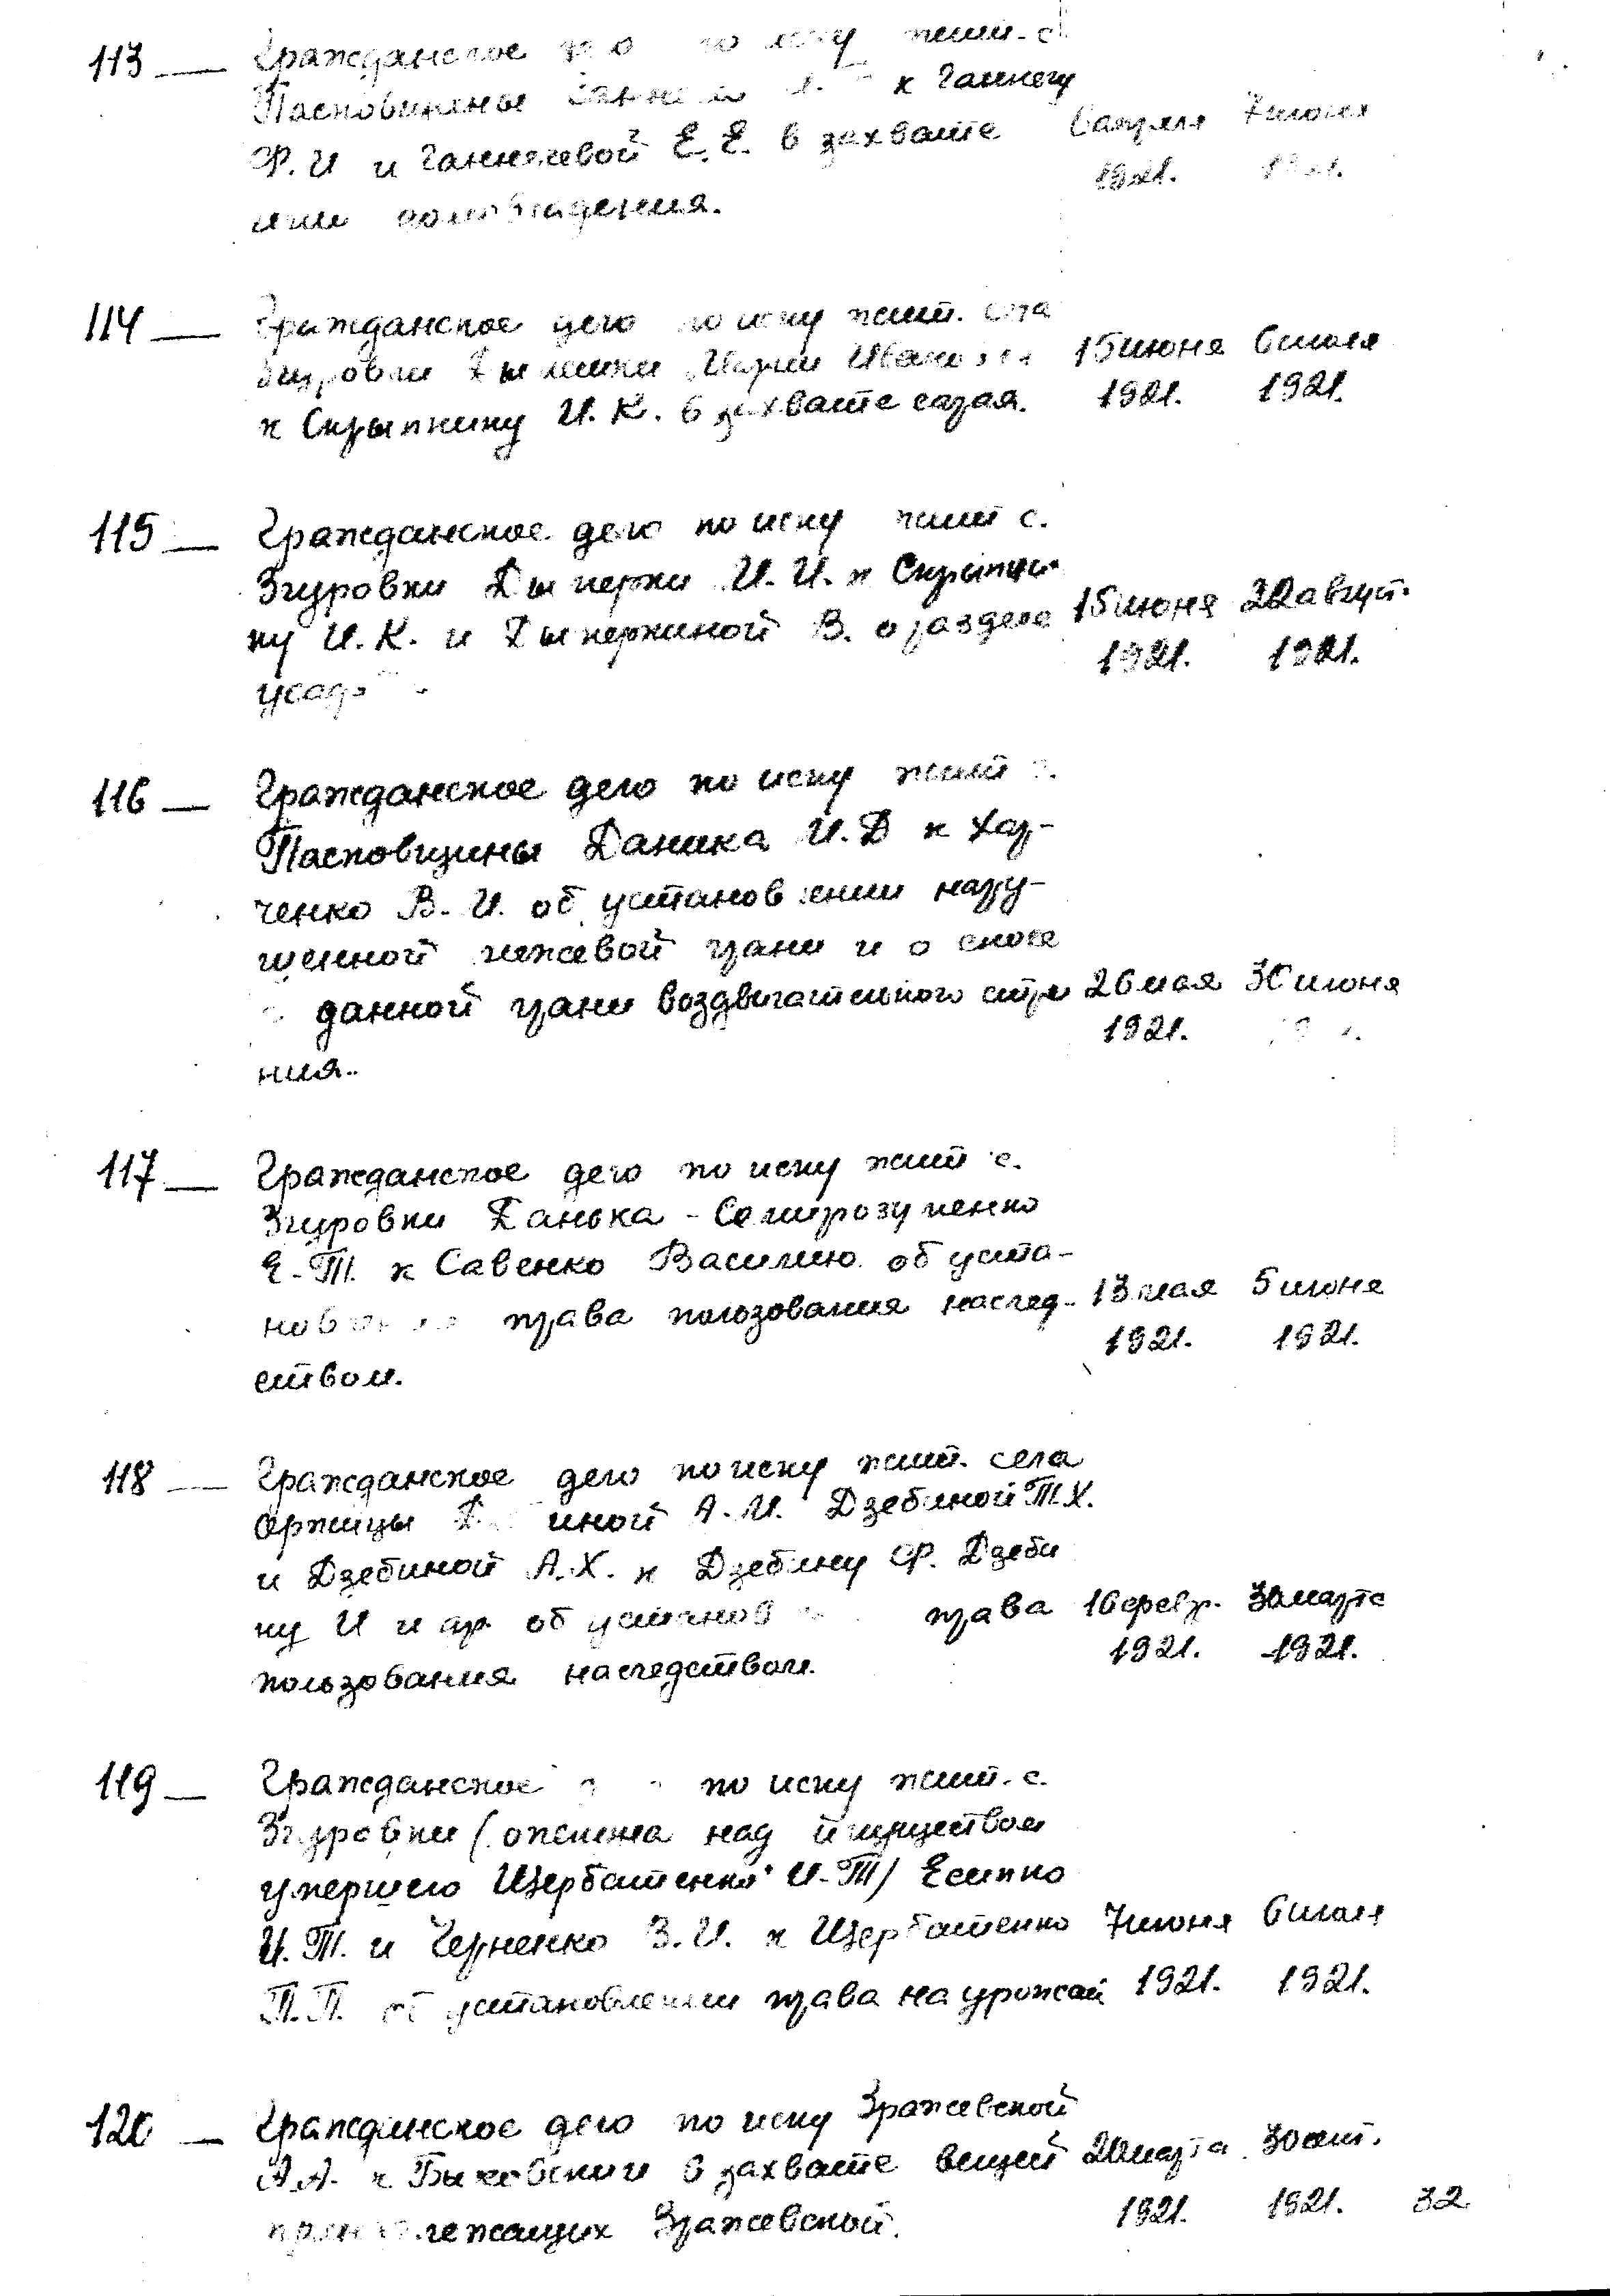 113 — Гражданское по иску жит. с.
Пасковщины к Ганнечу
Ф. И и Ганнечевой Е. Е. в захвате 6 апреля 7 июля
ими домовладения. 1921. 1921.
114 — Гражданское дело по иску жит. села
Згуровки Марии Ивановны 15 июня 6 июля
к Скрыпнику И. К. в захвате сарая. 1921. 1921.
115 — Гражданское дело по иску жит с.
Згуровки Дымерки И. И. к Скрыпни-
ку И. К. и Дымеркиной В. о разделе 15 июня 22 август.
1921. 1921.
116 — Гражданское дело по иску жит с.
Пасковщины Даника И. Д к Хар-
ченко В. И. об установлении нару-
шенной межевой грани и о сносе
с данной грани воздвигательного строе 26 мая 30 июня
1921.
ния.
117 — Гражданское дело по иску жит с.
Згуровки Данька - Семирозуменко
Е. Т. к Савенко Василию об уста-
новлении права пользования наслед- 13 мая 5 июня
1921. 1921.
ством.
118 — Гражданское дело по иску жит. села
Оржицы иной А. И. Дзебиной Т. Х.
и Дзебиной А. Х. к Дзебину Ф. Дзеби
ну И и др. об установ права 16 февр. 30 марта
1921. 1921.
пользования наследством.
119 — Гражданское по иску жит. с.
Згуровки (опекина над имуществом
умершего Щербатенко И. Т) Есипко
И. Т. и Черненко З. И. к Щербатенко 7 июня 6 июля
П. П. об установлении права на урожай 1921. 1921.
120 — Гражданское дело по иску Зражевской
А. А. к Быковский в захвате вещей 20 марта 30 окт.
принадлежащих Зражевской. 1921. 1921. 32